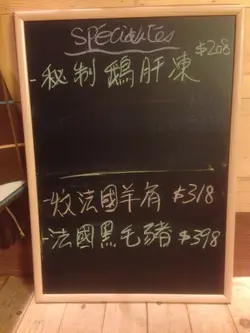 SPÉCIALITÉS
-秘制鵝肝凍 $208
-炆法國羊肩 $318
-法國黑毛豬 $398